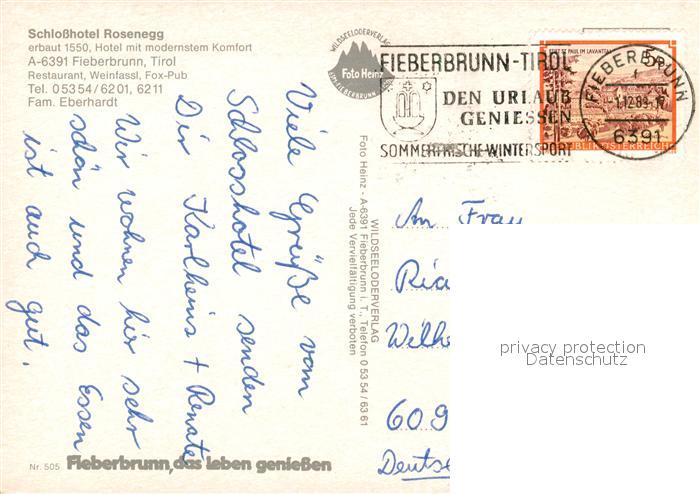 Schloßhotel Rosenegg
erbaut 1550, Hotel mit modernstem Komfort
A-6391 Fieberbrunn, Tirol
Restaurant, Weinfassl, Fox-Pub
Tel. 0 53 54 / 62 01, 62 11
Fam. Eberhardt
Viele Grüße vom
Schlosshotel senden
Dir Karlheinz + Renate
Wir wohnen hir sehr
schön und das Essen
ist auch gut.
Nr. 505 Fieberbrunn, das Leben genießen
WILDSEELODERVERLAG
Foto Heinz
FIEBERBRUNN
WILDSEELODERVERLAG
Foto Heinz - A-6391 Fieberbrunn i. T., Telefon 0 53 54 / 63 61
Jede Vervielfältigung verboten
FIEBERBRUNN-TIROL
DEN URLAUB
GENIESSEN
SOMMERFRISCHE-WINTERSPORT
STIFT ST. PAUL IM LAVANTTAL
5
REPUBLIK ÖSTERREICH
FIEBERBRUNN
6391
An Frau
Ria
Wilhe
609
Deutsc
privacy protection
Datenschutz